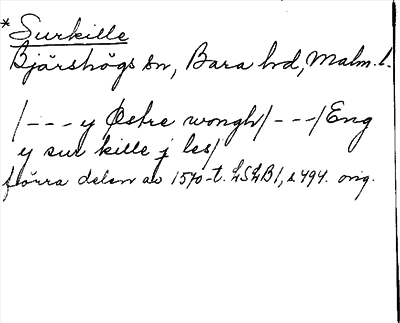 * Surkille
Bjärshögs sn, Bara hd, Malm. l.
/--- y Østre wongh/---/Eng
y sur kille j les/
förra delen av 1570-t. LSLB 1, s 494. orig.